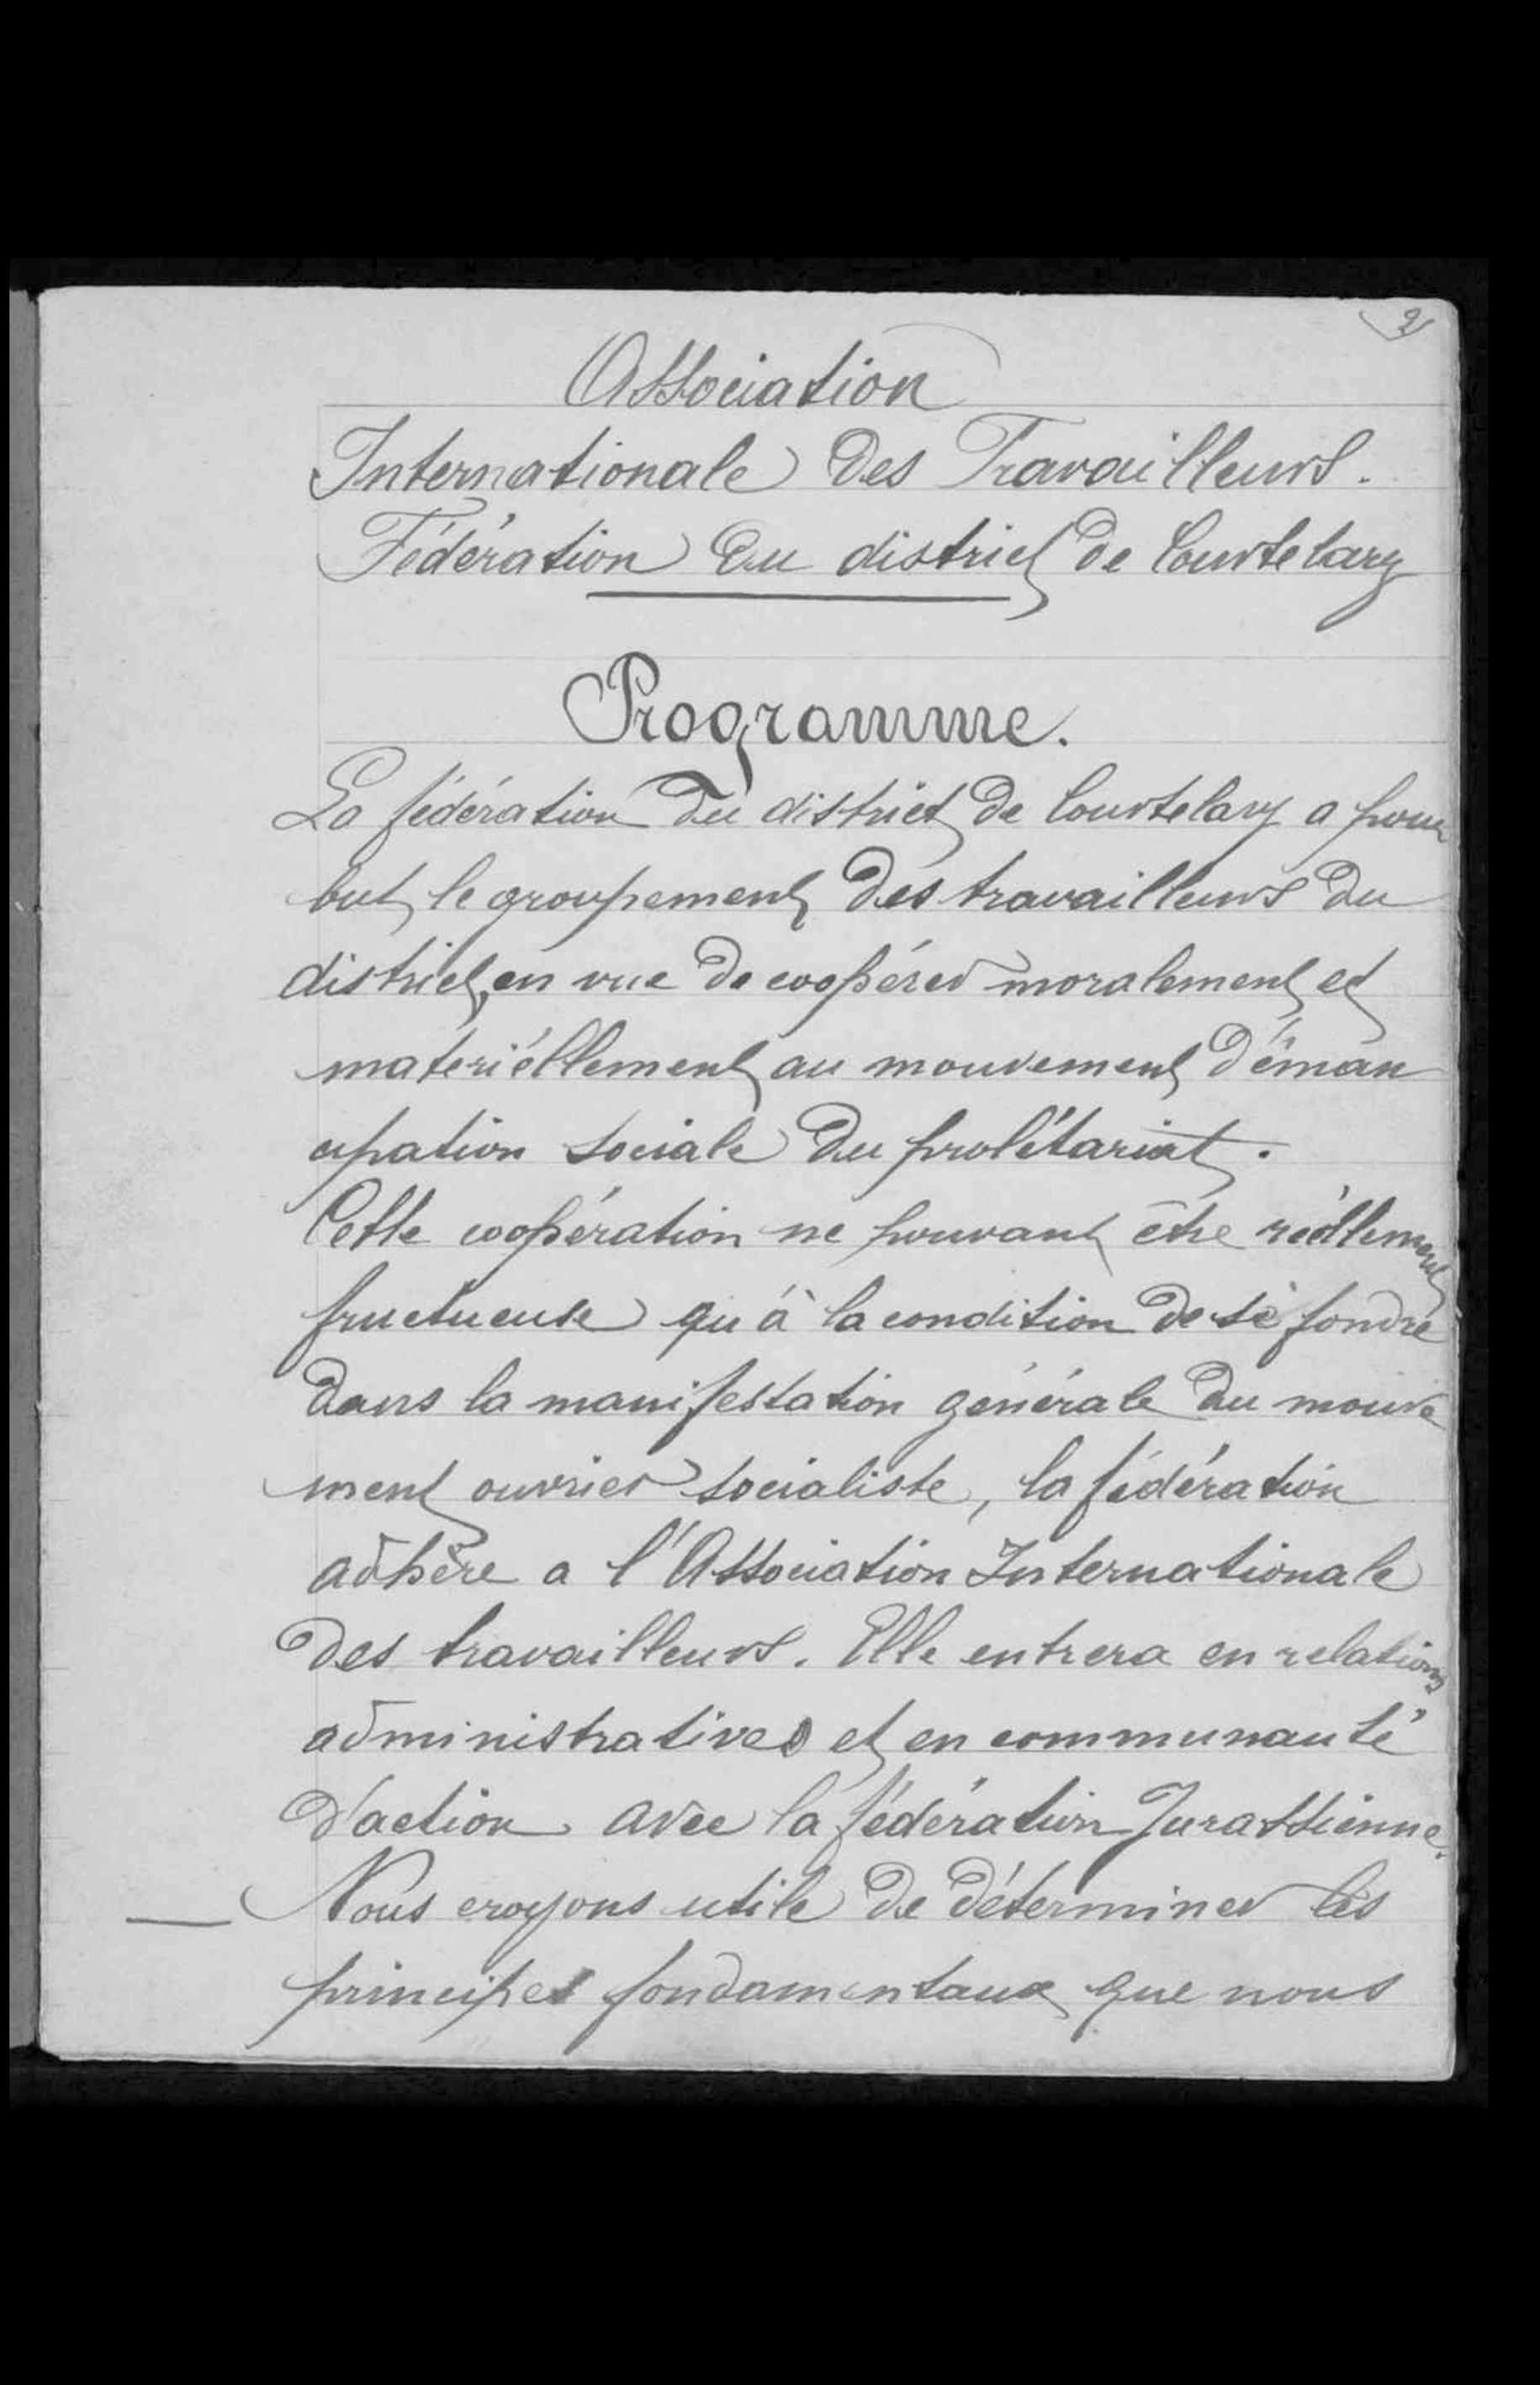 2
Association
Internationale des Travailleurs.
Fédération du district de Courtelary
Programme.
La fédération du district de Courtelary a pour
but le groupement des travailleurs du
district, en vue de coopérer moralement et
matériéllement au mouvement d'éman
cipation sociale du prolétariat.
Cette coopération ne pouvant être réellement
fructueuse qu'à la condition de se fondre
dans la manifestation générale du mouve
ment ouvrier socialiste, la fédération
adhère a l'Association Internationale
des travailleurs. Elle entrera en relations
administratives et en communauté
d'action avec la fédération Jurassienne.
Nous croyons utile de déterminer les
principes fondamentaux que nous